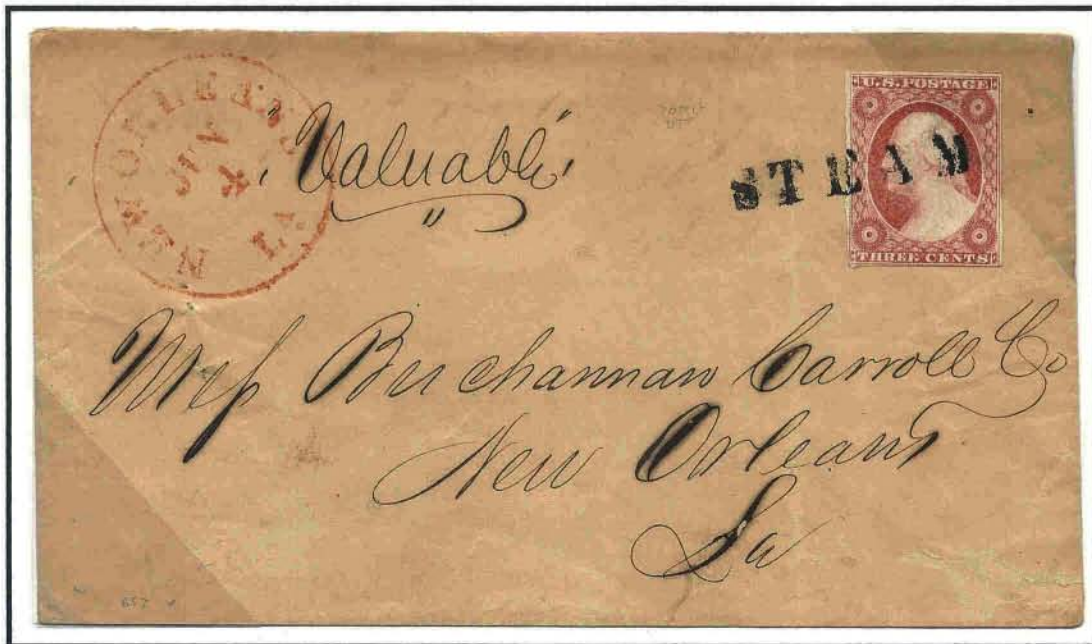 NEW ORLEANS LA
JUN
4
"Valuable"
U.S. POSTAGE
STEAM
THREE CENTS
Mess Buchannan Carroll & Co
New Orleans
La